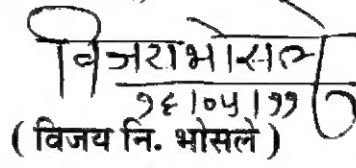 विजय भोसले
१६।०५।११
( विजय नि. भोसले )